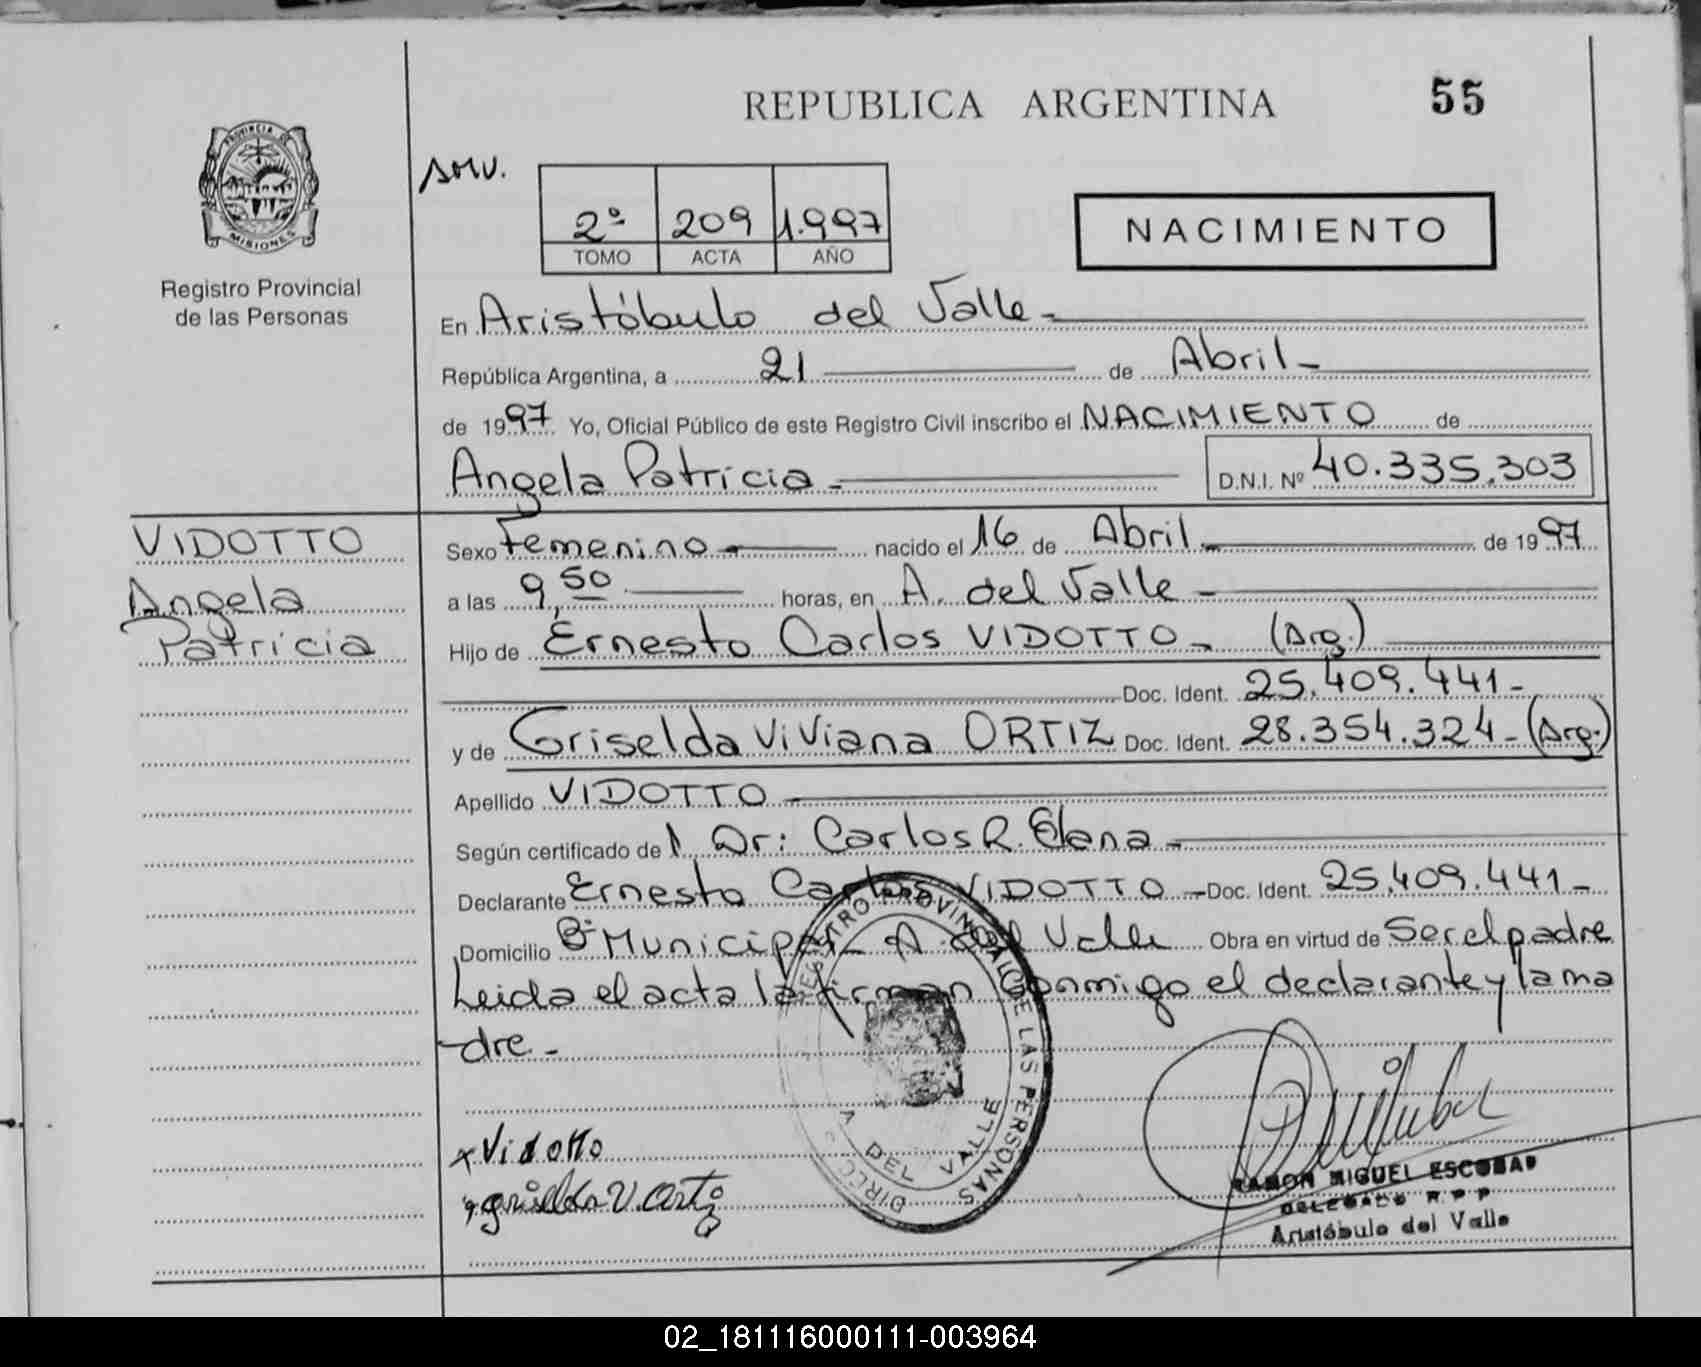 REPUBLICA ARGENTINA
55
PROVINCIA DE
MISIONES
Registro Provincial
de las Personas
2º 209 1.997
TOMO ACTA AÑO
NACIMIENTO
En Aristóbulo del Valle-
República Argentina, a 21 de Abril-
de 1997. Yo, Oficial Público de este Registro Civil inscribo el NACIMIENTO de
Angela Patricia- D.N.I. Nº 40.335.303
VIDOTTO
Angela
Patricia
Sexo Femenino- nacido el 16 de Abril- de 1997
a las 9,50 horas, en A. del Valle-
Hijo de Ernesto Carlos VIDOTTO- (Arg.)
Doc. Ident. 25.409.441-
y de Griselda Viviana ORTIZ Doc. Ident. 28.354.324-(Arg.)
Apellido VIDOTTO-
Según certificado del Dr: Carlos R. Elena-
Declarante Ernesto Carlos VIDOTTO- Doc. Ident. 25.409.441-
Domicilio Bº Municipal- A. del Valle Obra en virtud de Ser el padre
Leida el acta la firman conmigo el declarante y la ma
-dre-
REGISTRO PROVINCIAL DE LAS PERSONAS
A DEL VALLE
x Vidotto
Griselda V. Ortiz
RAMON MIGUEL ESCOBAR
DELEGADO R P P
Aristóbulo del Valle
02_181116000111-003964